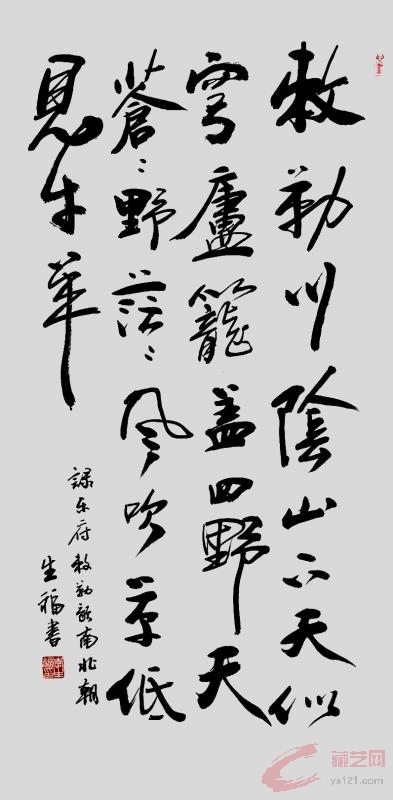 敕勒川陰山下天似
穹廬籠盖四野天
蒼々野茫々風吹草低
見牛羊
録乐府敕勒歌南北朝
生福書
藏艺网
ys121.com